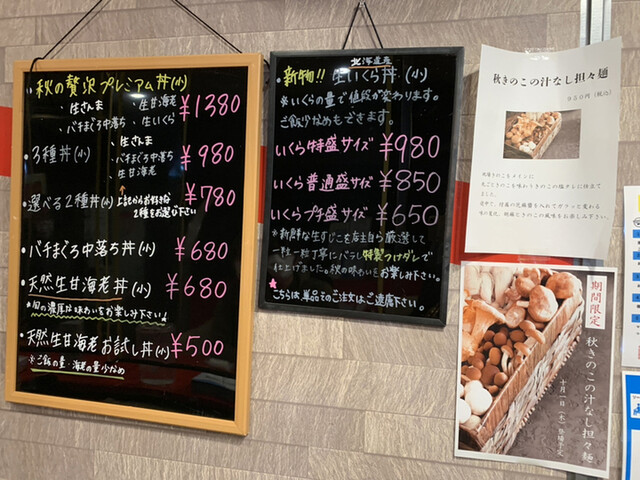 ・秋の贅沢プレミアム丼(小)
・生さんま ・生甘海老
・バチまぐろ中落ち ・生いくら
¥1380
・3種丼(小)
・生さんま
・バチまぐろ中落ち
・生甘海老
¥980
・選べる2種丼(小)
↑
上記からお好きな
2種をお選び下さい
¥780
・バチまぐろ中落ち丼(小) ¥680
・天然生甘海老丼(小) ¥680
*旬の濃厚な味わいをお楽しみ下さい!
・天然生甘海老お試し丼(小) ¥500
※ご飯の量・海老の量少なめ
北海道産
・新物!! 生いくら丼(小)
※いくらの量で値段が変わります。
ご飯少なめもできます。
いくら特盛サイズ ¥980
いくら普通盛サイズ ¥850
いくらプチ盛サイズ ¥650
※新鮮な生すじこを店主自ら厳選して
一粒一粒丁寧にバラし特製つけダレで
仕上げました。秋の味わいをお楽しみ下さい。
こちらは単品でのご注文はご遠慮下さい。
秋きのこの汁なし担々麺
950円(税込)
期間限定
秋きのこの汁なし担々麺
十月一日(木)登場予定